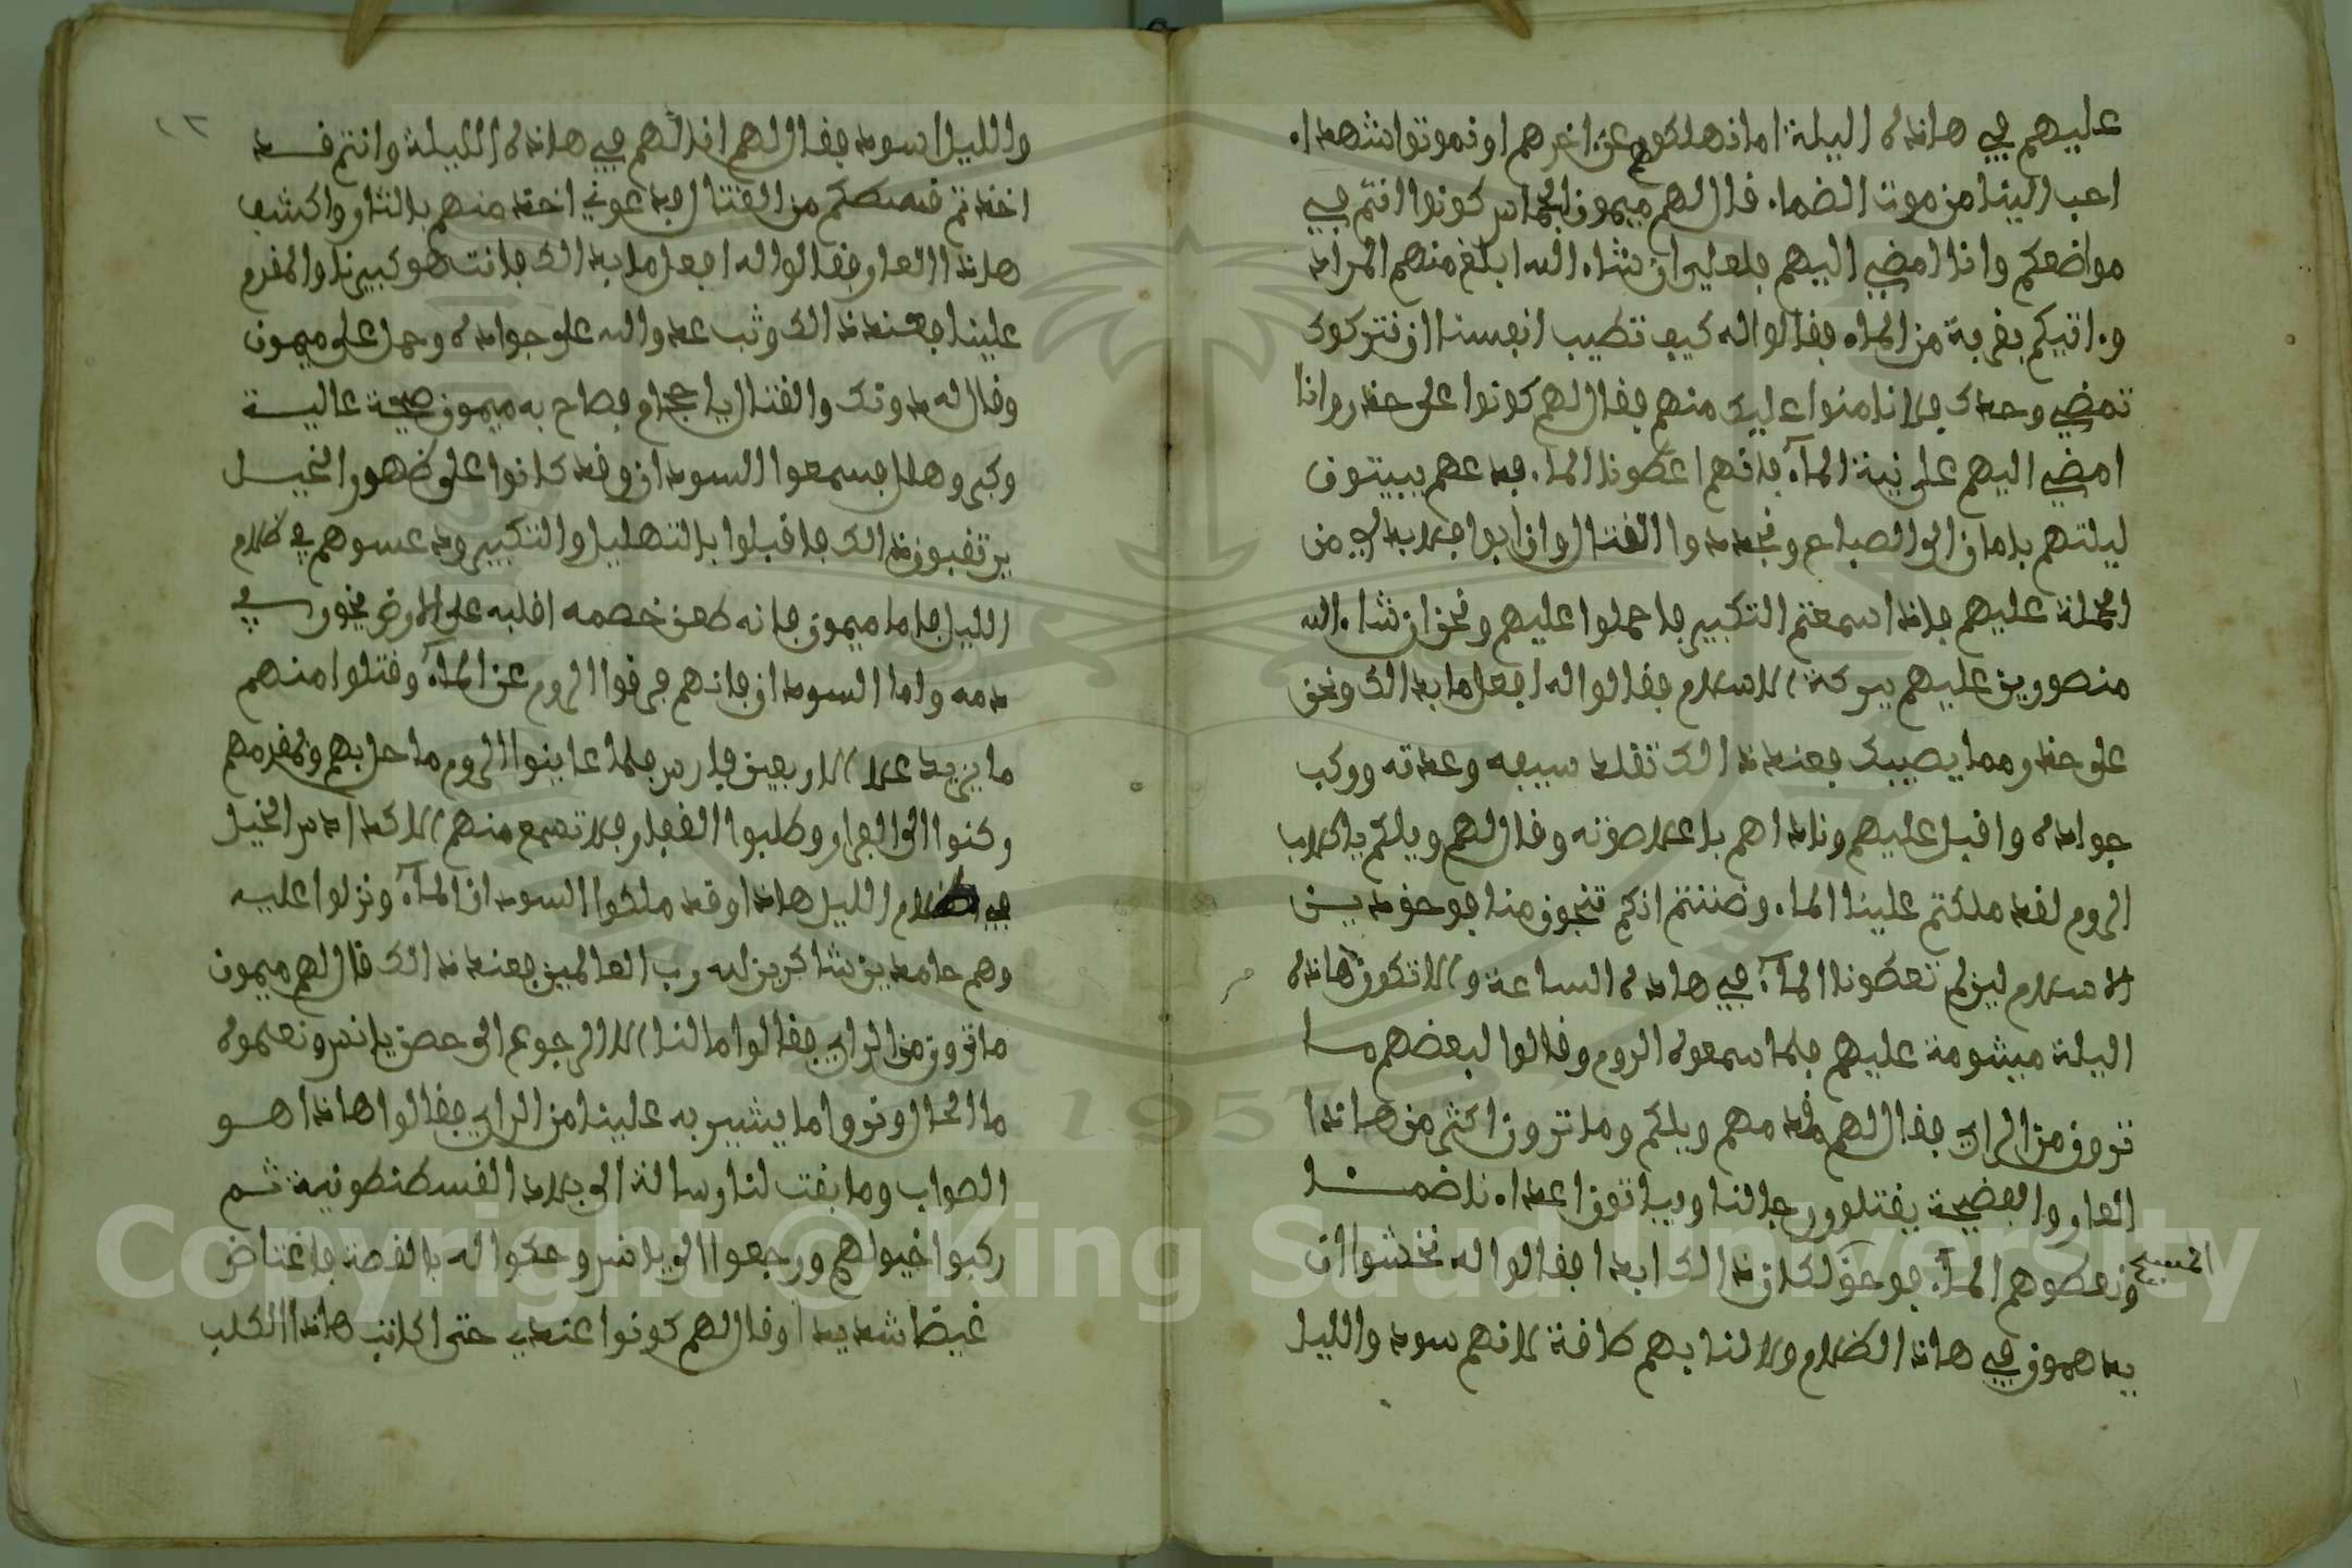 عليهم في هاذه اليلة اما نهلكوهم عن اخرهم او نموتوا شهدا
احب الينا من موت الضما. قال لهم ميمون الجاس كونوا انتم في
مواضعكم وانا امضي اليهم فلعلي ان شاء الله ابلغ منهم المراد
واتيكم بقربة من الماء فقالوا له كيف تطيب انفسنا ان نتركوك
تمضي وحدك فلا نامنوا عليك منهم فقال لهم كونوا على حذر وانا
امضي اليهم على نية الماء فانهم اعطونا الماء فدعهم يبيتون
ليلتهم بامان الى الصباح ونجددوا القتال وان ابوا فلا بد لي من
الحملة عليهم فاذا سمعتم التكبير فاحملوا عليهم ونحن ان شاء الله
منصورين عليهم ببركة الاسلام فقالوا له افعل ما بدالك ونحن
على حذر مما يصيبك فعند ذالك تقلد سيفه وعدته وركب
جواده واقبل عليهم وناداهم باعلا صوته وقال لهم ويلكم يا كلاب
الروم لقد ملكتم علينا الماء وضننتم انكم تنجون منا فوحق دين
الاسلام لين لم تعطونا الماء في هاذه الساعة والا تكون هاذه
اليلة ميشومة عليهم فلما سمعوه الروم وقالوا لبعضهم ما
ترون من الراي فقال لهم مقدمهم ويلكم وما ترون اكثر من هاذا
العار والفضيحة يقتلون رجالنا ويباتون اعداء ناضمنا
ونعطوهم الماء فوحق المسيح لا كان ذالك ابدا فقالوا له نخشوا ان
يدهمون في هاذا الظلام ولا لنا بهم طاقة لانهم سود والليل
والليل اسود فقال لهم انذالهم في هاذه الليلة وانتم قد
اخذتم قسطكم من القتال فدعوني اخذ منهم بالثار واكشف
هاذا العار فقالوا له افعل ما بدالك فانت هو كبيرنا والمقدم
علينا فعند ذالك وثب عدو الله على جواده وحمل على ميمون
وقال له دونك والقتال يا حجام فصاح به ميمون صيحة عالية
وكبر وهلل فسمعوا السودان وقد كانوا على ضهور الخيل
يرتقبون ذالك فاقبلوا بالتهليل والتكبير ودعسوهم في ظلام
الليل فاما ميمون فانه طعن خصمه اقلبه على الارض يخور في
دمه واما السودان فانهم فرقوا الروم عن الماء وقتلوا منهم
ما يزيد على الاربعين فارس فلما عاينوا الروم ما حل بهم وبمقدمهم
ركنوا الى الفرار وطلبوا القفار فلا تسمع منهم الا كدادس الخيل
في ظلام الليل هاذا وقد ملكوا السودان الماء ونزلوا عليه
وهم حامدين شاكرين لله رب العالمين فعند ذالك قال لهم ميمون
ما ترون من الراي فقالوا ما لنا الا الرجوع الى حصن يانس ونعلموه
ما الحال ونروا ما يشير به علينا من الراي فقالوا هاذا هو
الصواب وما بقت لنا رسالة الى بلاد القسطنطونية ثم
ركبوا خيولهم ورجعوا الى يانس وحكوا له بالقصة فاغتاض
غيضا شديدا وقال لهم كونوا عندي حتى اكاتب هاذا الكلب